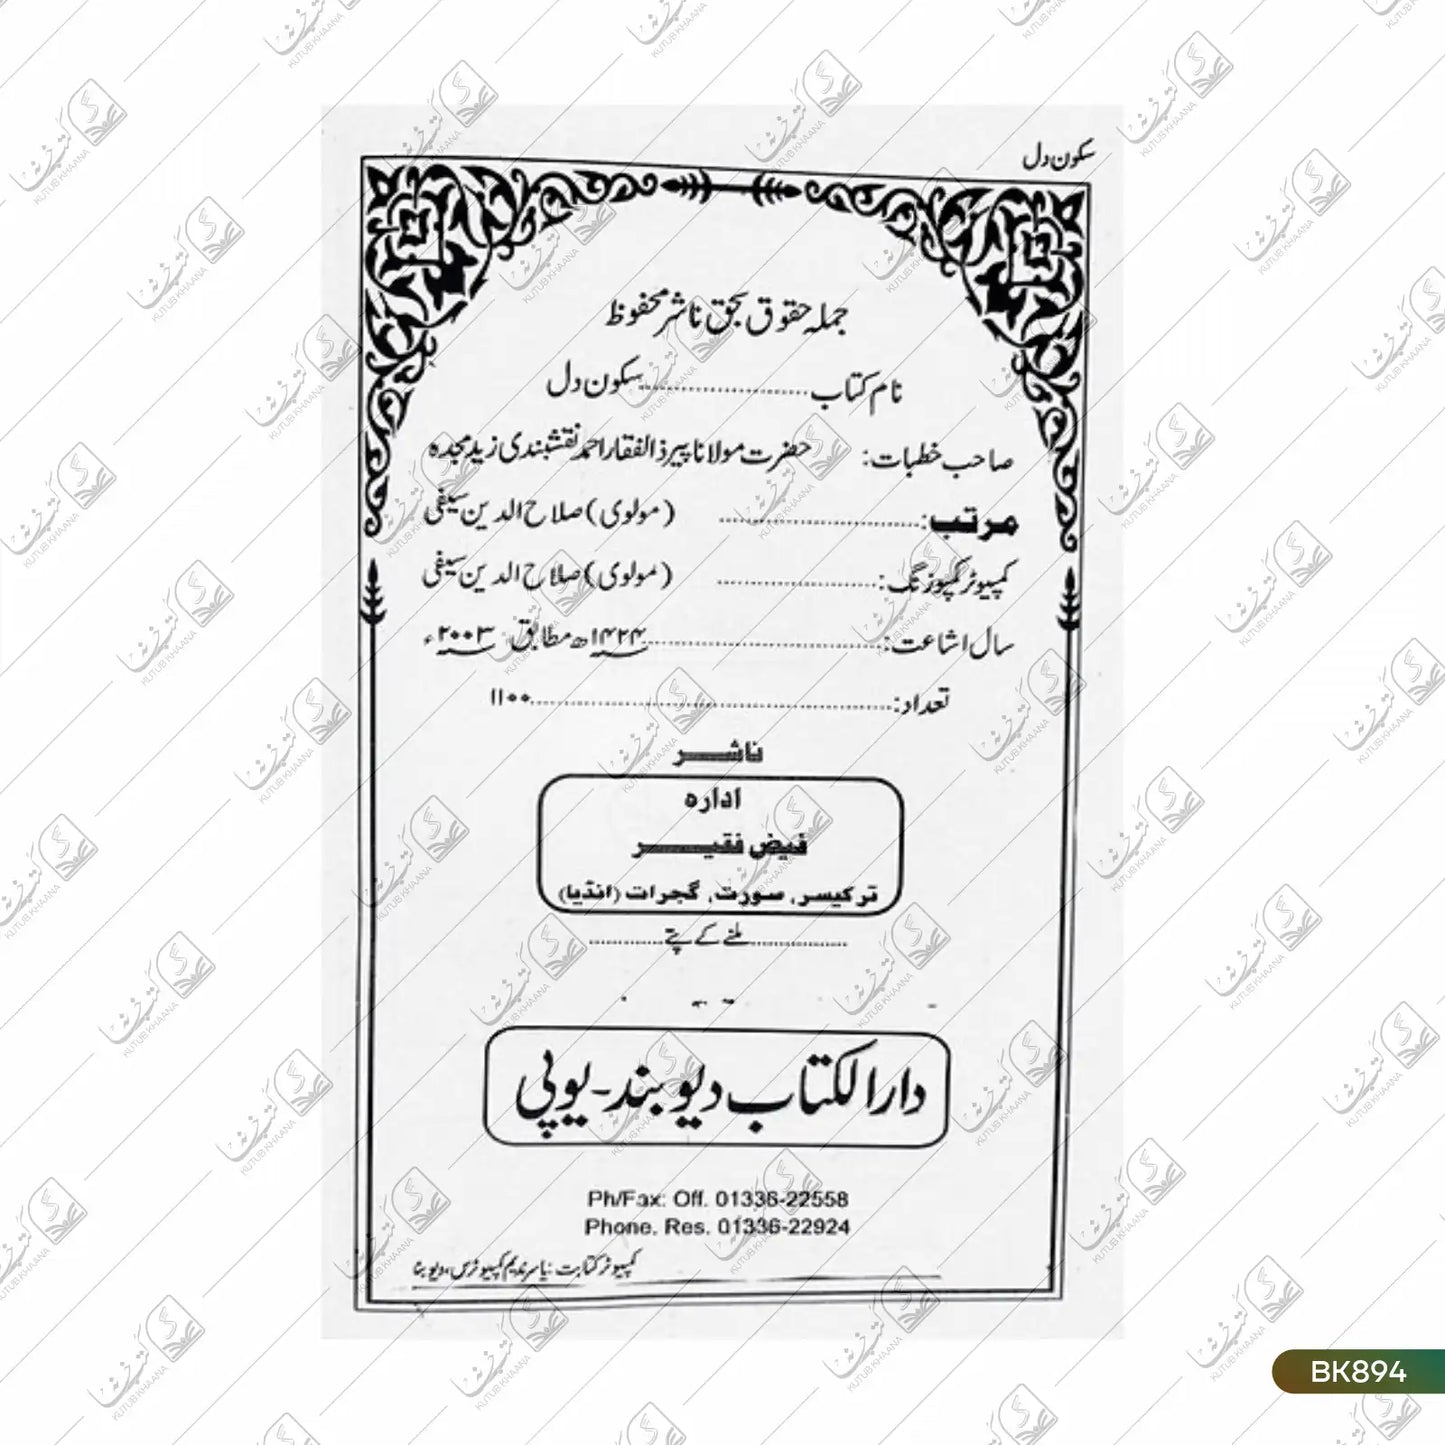 سکون دل
جملہ حقوق بحق ناشر محفوظ
نام کتاب ........................ سکون دل
صاحب خطبات: حضرت مولانا پیر ذالفقار احمد نقشبندی زید مجدہ
مرتب: ........................ (مولوی) صلاح الدین سیفی
کمپیوٹر کمپوزنگ: ........................ (مولوی) صلاح الدین سیفی
سال اشاعت: ........................ ۱۴۲۴ھ مطابق ۲۰۰۳ء
تعداد: ........................ ۱۱۰۰
ناشر
ادارہ
فیض فقیر
ترکیسر، سورت، گجرات (انڈیا)
............ ملنے کے پتے ............
دارالکتاب دیوبند-یوپی
Ph/Fax: Off. 01336-22558
Phone. Res. 01336-22924
کمپیوٹر کتابت: یاسر ندیم کمپیوٹرس، دیوبند
BK894
کتب خانہ
KUTUB KHAANA